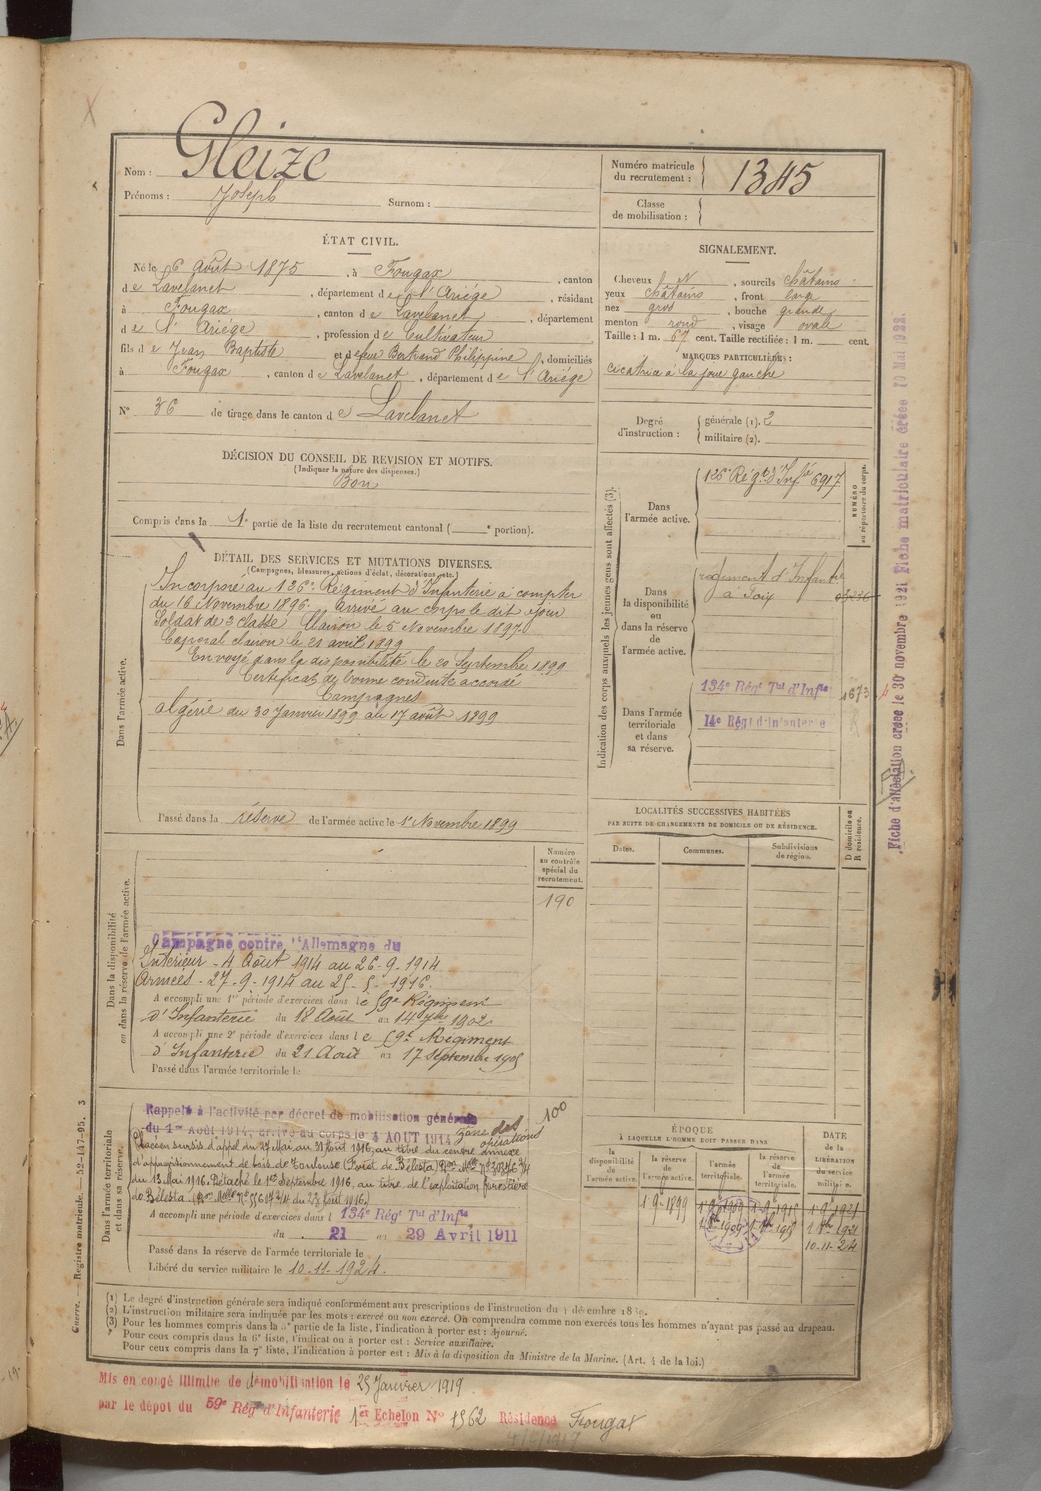 Nom : Gleize
Prénoms : Joseph Surnom :
Numéro matricule du recrutement : 1345
Classe de mobilisation :
ÉTAT CIVIL.
Né le 6 Août 1875, à Fougax, canton
de Lavelanet, département de l'Ariége, résidant
à Fougax, canton de Lavelanet, département
de l'Ariége, profession de Cultivateur
fils de Jean Baptiste et de feue Bertrand Philippine, domiciliés
à Fougax, canton de Lavelanet, département de l'Ariége
N° 36 de tirage dans le canton de Lavelanet
SIGNALEMENT.
Cheveux N, sourcils châtains
yeux châtains, front large
nez gros, bouche grande
menton rond, visage ovale
Taille : 1 m. 67 cent. Taille rectifiée : 1 m. cent.
MARQUES PARTICULIÈRES :
cicatrice à la joue gauche
Degré d'instruction : générale (1). 2
militaire (2).
DÉCISION DU CONSEIL DE REVISION ET MOTIFS.
(Indiquer la nature des dispenses.)
Bon
Compris dans la 1e partie de la liste du recrutement cantonal ( e portion).
DÉTAIL DES SERVICES ET MUTATIONS DIVERSES.
(Campagnes, blessures, actions d'éclat, décorations, etc.)
Dans l'armée active.
Incorporé au 126e Régiment d'Infanterie à compter
du 16 Novembre 1896. Arrivé au corps le dit jour
Soldat de 2e classe Clairon le 5 Novembre 1897
Caporal clairon le 21 avril 1899
Envoyé dans la disponibilité le 20 Septembre 1899
Certificat de bonne conduite accordé
Campagnes
Algérie du 30 Janvier 1899 au 17 août 1899
Passé dans la réserve de l'armée active le 1er Novembre 1899
Indication des corps auxquels les jeunes gens sont affectés (3).
Dans l'armée active. 126e Régt d'Infie 6917
NUMÉRO au répertoire du corps.
Dans la disponibilité ou dans la réserve de l'armée active.
régiment d'Infanterie
à Foix
Dans l'armée territoriale et dans sa réserve.
134e Régt Tal d'Infie 1673
14e Régt d'Infanterie
LOCALITÉS SUCCESSIVES HABITÉES
PAR SUITE DE CHANGEMENTS DE DOMICILE OU DE RÉSIDENCE.
Dates. Communes. Subdivisions de région. D domicile ou R résidence.
Dans la disponibilité ou dans la réserve de l'armée active.
Numéro au contrôle spécial du recrutement.
190
Campagne contre l'Allemagne du
Intérieur - 4 Août 1914 au 26-9-1914
Armées - 27-9-1914 au 25-5-1916
A accompli une 1re période d'exercices dans le 59e Régiment
d'Infanterie du 18 Août au 14 7bre 1902
A accompli une 2e période d'exercices dans le 59e Régiment
d'Infanterie du 21 Août au 17 Septembre 1905
Passé dans l'armée territoriale le
Dans l'armée territoriale et dans sa réserve.
100
Rappelé à l'activité par décret de mobilisation générale
du 1er Août 1914, arrivé au corps le 4 AOUT 1914 zone des opérations
Placé en sursis d'appel du 27 Mai au 31 Août 1916, au titre du centre annexe
d'approvisionnement de bois de Toulouse (Forêt de Bélesta)
du 13 Mai 1916. Détaché le 1er Septembre 1916, au titre de l'exploitation forestière
de Bélesta
A accompli une période d'exercices dans l 134e Régt Tal d'Infie
du 21 au 29 Avril 1911
Passé dans la réserve de l'armée territoriale le
Libéré du service militaire le 10-11-1924.
ÉPOQUE
À LAQUELLE L'HOMME DOIT PASSER DANS
la disponibilité de l'armée active. la réserve de l'armée active. l'armée territoriale. la réserve de l'armée territoriale.
DATE de la LIBÉRATION du service militaire.
1 9bre 1899 1 9bre 1909 1 9bre 1915 1 9bre 1921
10-11-24
(1) Le degré d'instruction générale sera indiqué conformément aux prescriptions de l'instruction du 4 décembre 1889.
(2) L'instruction militaire sera indiquée par les mots : exercé ou non exercé. On comprendra comme non exercés tous les hommes n'ayant pas passé au drapeau.
(3) Pour les hommes compris dans la 5e partie de la liste, l'indication à porter est : Ajourné.
Pour ceux compris dans la 6e liste, l'indication à porter est : Service auxiliaire.
Pour ceux compris dans la 7e liste, l'indication à porter est : Mis à la disposition du Ministre de la Marine. (Art. 4 de la loi.)
Mis en congé illimité de démobilisation le 25 Janvier 1919
par le dépot du 59e Rég d'Infanterie 1er Echelon No 1562 Résidence Fougax
Guerre. — Registre matricule. — 32-147-95. 3
Fiche d'affectation créée le 30 novembre 1921 Fiche matriculaire créée 10 Mai 1922.